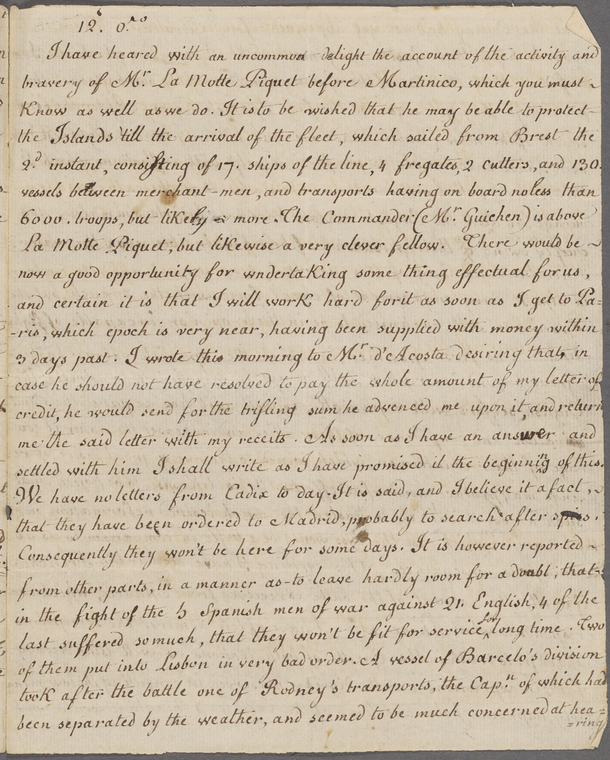 12. O.
I have heared with an uncommon delight the account of the activity and
bravery of Mr La Motte Piquet before Martinico, which you must
Know as well as we do. It is to be wished that he may be able to protect
the Islands 'till the arrival of the fleet, which sailed from Brest the
2d instant, consisting of 17. ships of the line, 4 fregates, 2 cutters, and 130
vessels between merchant-men, and transports having on board no less than
6000. troops, but likely more. The Commander (Mr Guichen) is above
La Motte Piquet, but likewise a very clever fellow. There would be
now a good opportunity for undertaking some thing effectual for us,
and certain it is that I will work hard for it as soon as I get to Pa-
-ris, which epoch is very near, having been supplied with money within
3 days past. I wrote this morning to Mr d'Acosta desiring that, in
case he should not have resolved to pay the whole amount of my letter of
credit, he would send for the trifling sum he advenced me upon it, and return
me the said letter with my receits. As soon as I have an answer and
settled with him I shall write as I have promised it the beginning of this.
We have no letters from Cadix to day. It is said, and I believe it a fact,
that they have been ordered to Madrid, probably to search after
Consequently they won't be here for some days. It is however reported
from other parts, in a manner as to leave hardly room for a doubt, that
in the fight of the 5 Spanish men of war against 21. English, 4 of the
last suffered so much, that they won't be fit for service for long time. Two
of them put into Lisbon in very bad order. A vessel of Barcelo's division
took after the battle one of Rodney's transports, the Capn of which had
been separated by the weather, and seemed to be much concerned at hea=
=ring